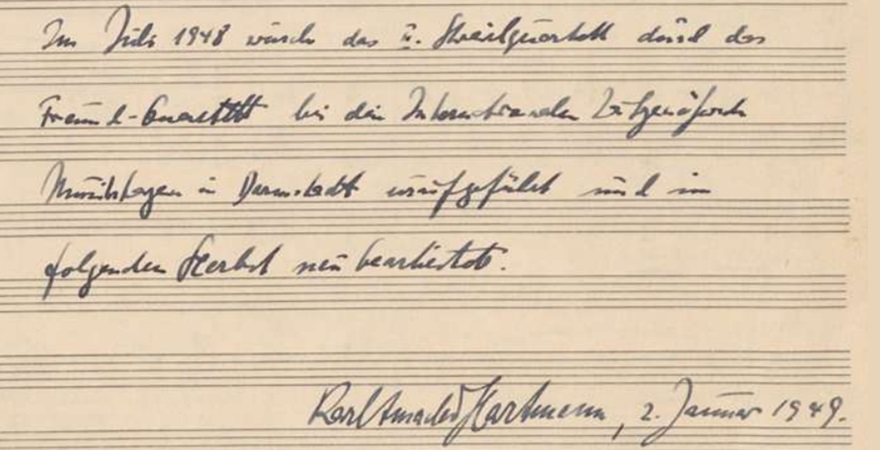 Im Juli 1948 wurde das II. Streichquartett durch das
Freund-Quartett bei den Internationalen Zeitgenössischen
Musiktagen in Darmstadt uraufgeführt und im
folgenden Herbst neu bearbeitet.
Karl Amadeus Hartmann, 2. Januar 1949.